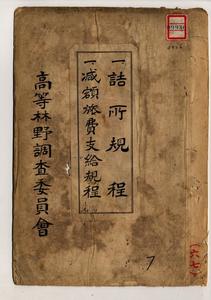 一詰所規程
一减額旅費支給規程
高等林野調査委員會